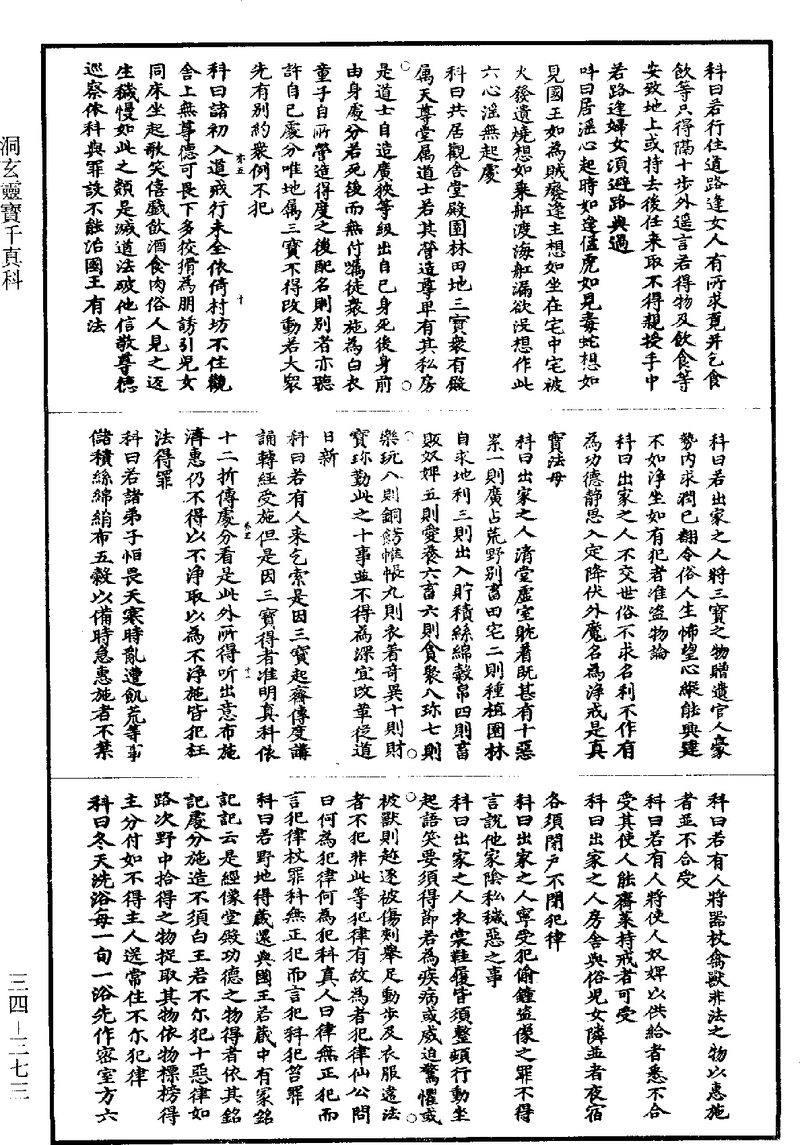 洞玄靈寶千真科
三四—二七三
科曰若行住道路逢女人有所求覓并乞食
飲等只得隔十步外遥言若得物及飲食等
安致地上或持去後任來取不得親授手中
若路逢婦女須避路與過
科曰居婬心起時如逢猛虎如見毒蛇想如
見國王如為賊癈逢主想如坐在宅中宅被
火發遺燒想如乘舡渡海舡漏欲没想作此
六心滛無起處
科曰共居觀舍堂殿園林田地三寳衆有殿
属天尊堂属道士若其營造尊卑有其私房
是道士自造廣狹等級出自己身死後身前
由身處分若死後而無付囑徒衆施為白衣
童子自所營造得度之後配名則别者亦聽
許自己處分唯地属三寳不得改動若大衆
先有别約衆例不犯
科曰諸初入道戒行未全依倚村坊不住觀
舍上無尊德可畏下多狡猾為朋誘引児女
同床坐起歌笑僖戲飲酒食肉俗人見之返
生穢慢如此之類是滅道法破他信敬尊德
巡察依科與罪設不能治國王有法
科曰若出家之人將三寳之物贈遺官人豪
勢内求潤己翻令俗人生怖望心縱能興建
不如浄坐如有犯者准盗物論
科曰出家之人不交世俗不求名利不作有
為功德静思入定降伏外魔名為浄戒是真
寳法母
科曰出家之人清堂虚室躭着既甚有十惡
累一則廣占荒野别畜田宅二則種植園林
自求地利三則出入貯積絲綿穀帛四則畜
販奴婢五則愛養六畜六則貪聚八珎七則
樂玩八則銅鐃帷帳九則衣着奇異十則財
寳珎勤此之十事並不得為深宜改革從道
日新
科曰若有人来乞索是因三寳起齋傳度講
誦轉經受施但是因三寳得者准明真科依
十二折傳處分看是此外所得听出意布施
濟惠仍不得以不浄取以為不浄施皆犯枉
法得罪
科曰若諸弟子怕畏天寒時亂遭飢荒等事
儲積絲綿絹布五穀以備時急惠施者不禁
科曰若有人將器杖禽獸非法之物以惠施
者並不合受
科曰若有人將使人奴婢以供給者悉不合
受其使人能齋菜持戒者可受
科曰出家之人房舍與俗児女隣並者夜宿
各須閉户不閉犯律
科曰出家之人寧受犯偷鍾盗像之罪不得
言說他家隂私穢惡之事
科曰出家之人衣裳鞋履皆須整頓行動坐
起語笑要須得節若為疾病或威迫驚懼或
被獸則趂逐被傷刺舉足動步及衣服違法
者不犯非此等犯律有故為者犯律仙公問
曰何為犯律何為犯科真人曰律無正犯而
言犯律杖罪科無正犯而言犯科犯笞罪
科曰若野地得藏還與國王若藏中有冢銘
記記云是經像堂殿功德之物得者依其銘
記處分施造不須白王若不尒犯十惡律如
路次野中拾得之物捉取其物依物標榜得
主分付如不得主人送常住不尒犯律
科曰冬天洗浴每一旬一浴先作密室方六